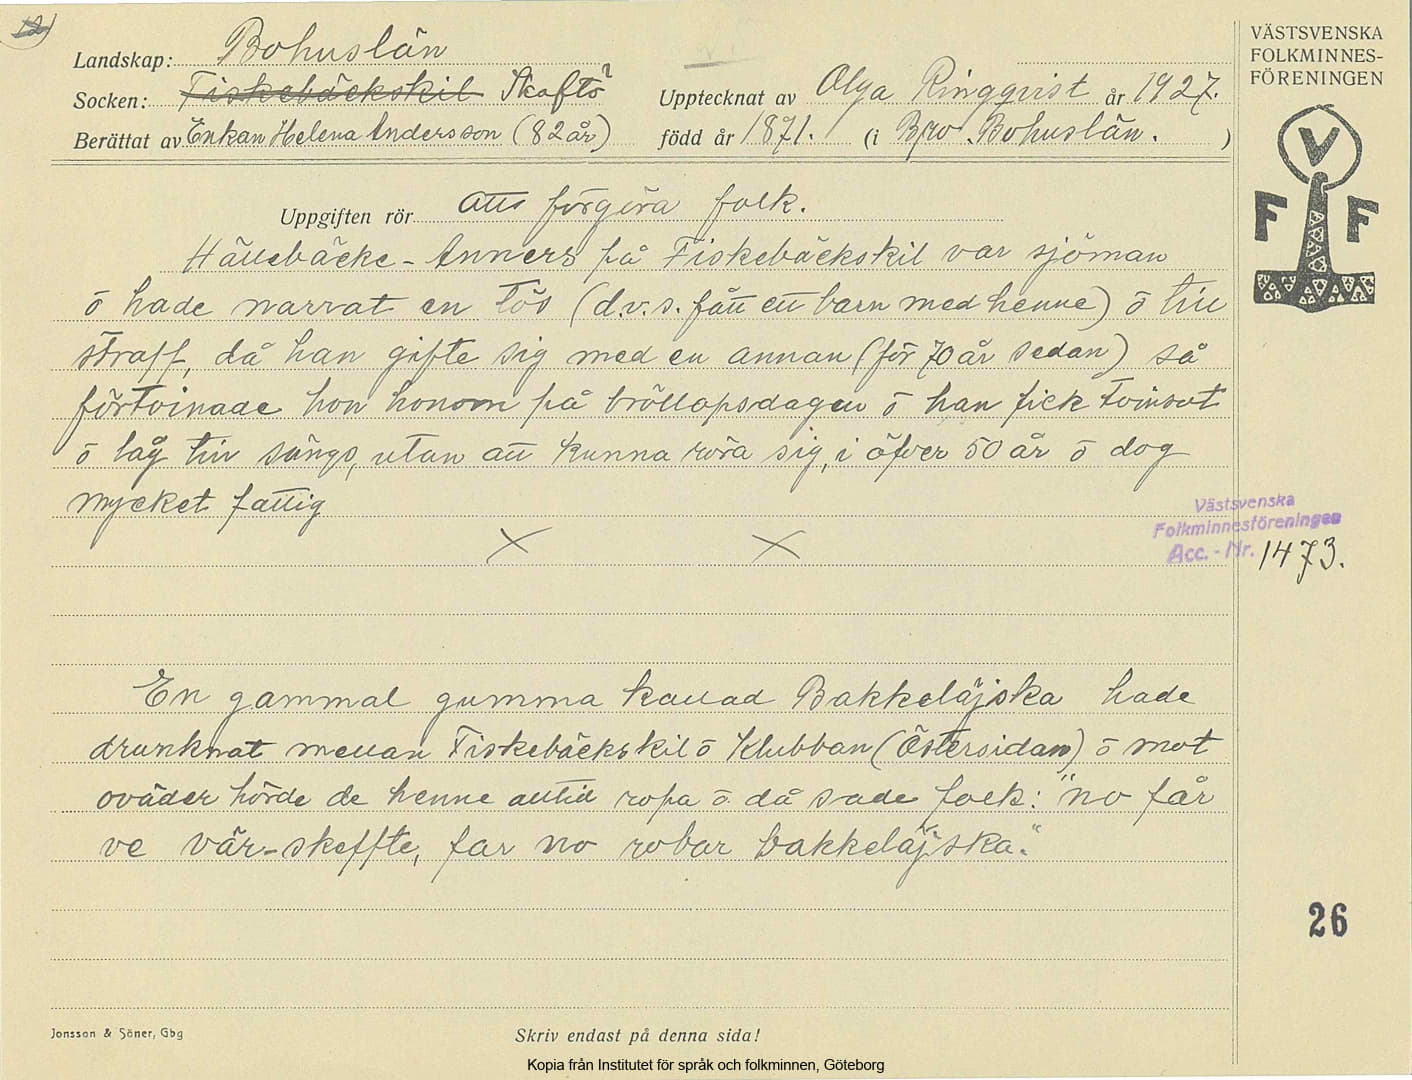 Landskap: Bohuslän
Socken: Fiskebäckskil Skaftö?
Upptecknat av Olga Ringqvist år 1927.
Berättat av Enkan Helena Andersson (82 år)
född år 1871. (i Bro. Bohuslän. )
VÄSTSVENSKA
FOLKMINNES-
FÖRENINGEN
V
F F
Uppgiften rör att förgöra folk.
Hällebäcke-Anners på Fiskebäckskil var sjöman
ō hade narrat en tös (d.v.s. fått ett barn med henne) ō till
straff, då han gifte sig med en annan (för 70 år sedan) så
förtvinade hon honom på bröllopsdagen ō han fick tvinsot
ō låg till sängs, utan att kunna röra sig, i öfver 50 år ō dog
mycket fattig
Västsvenska
Folkminnesföreningen
Acc. - Nr. 1473.
En gammal gumma kallad Bakkeläjska hade
drunknat mellan Fiskebäckskil ō Klubban (Östersidan) ō mot
oväder hörde de henne alltid ropa ō då sade folk: "no får
ve vär-skeffte, far no robar bakkeläjska."
26
Jonsson & Söner, Gbg
Skriv endast på denna sida!
Kopia från Institutet för språk och folkminnen, Göteborg